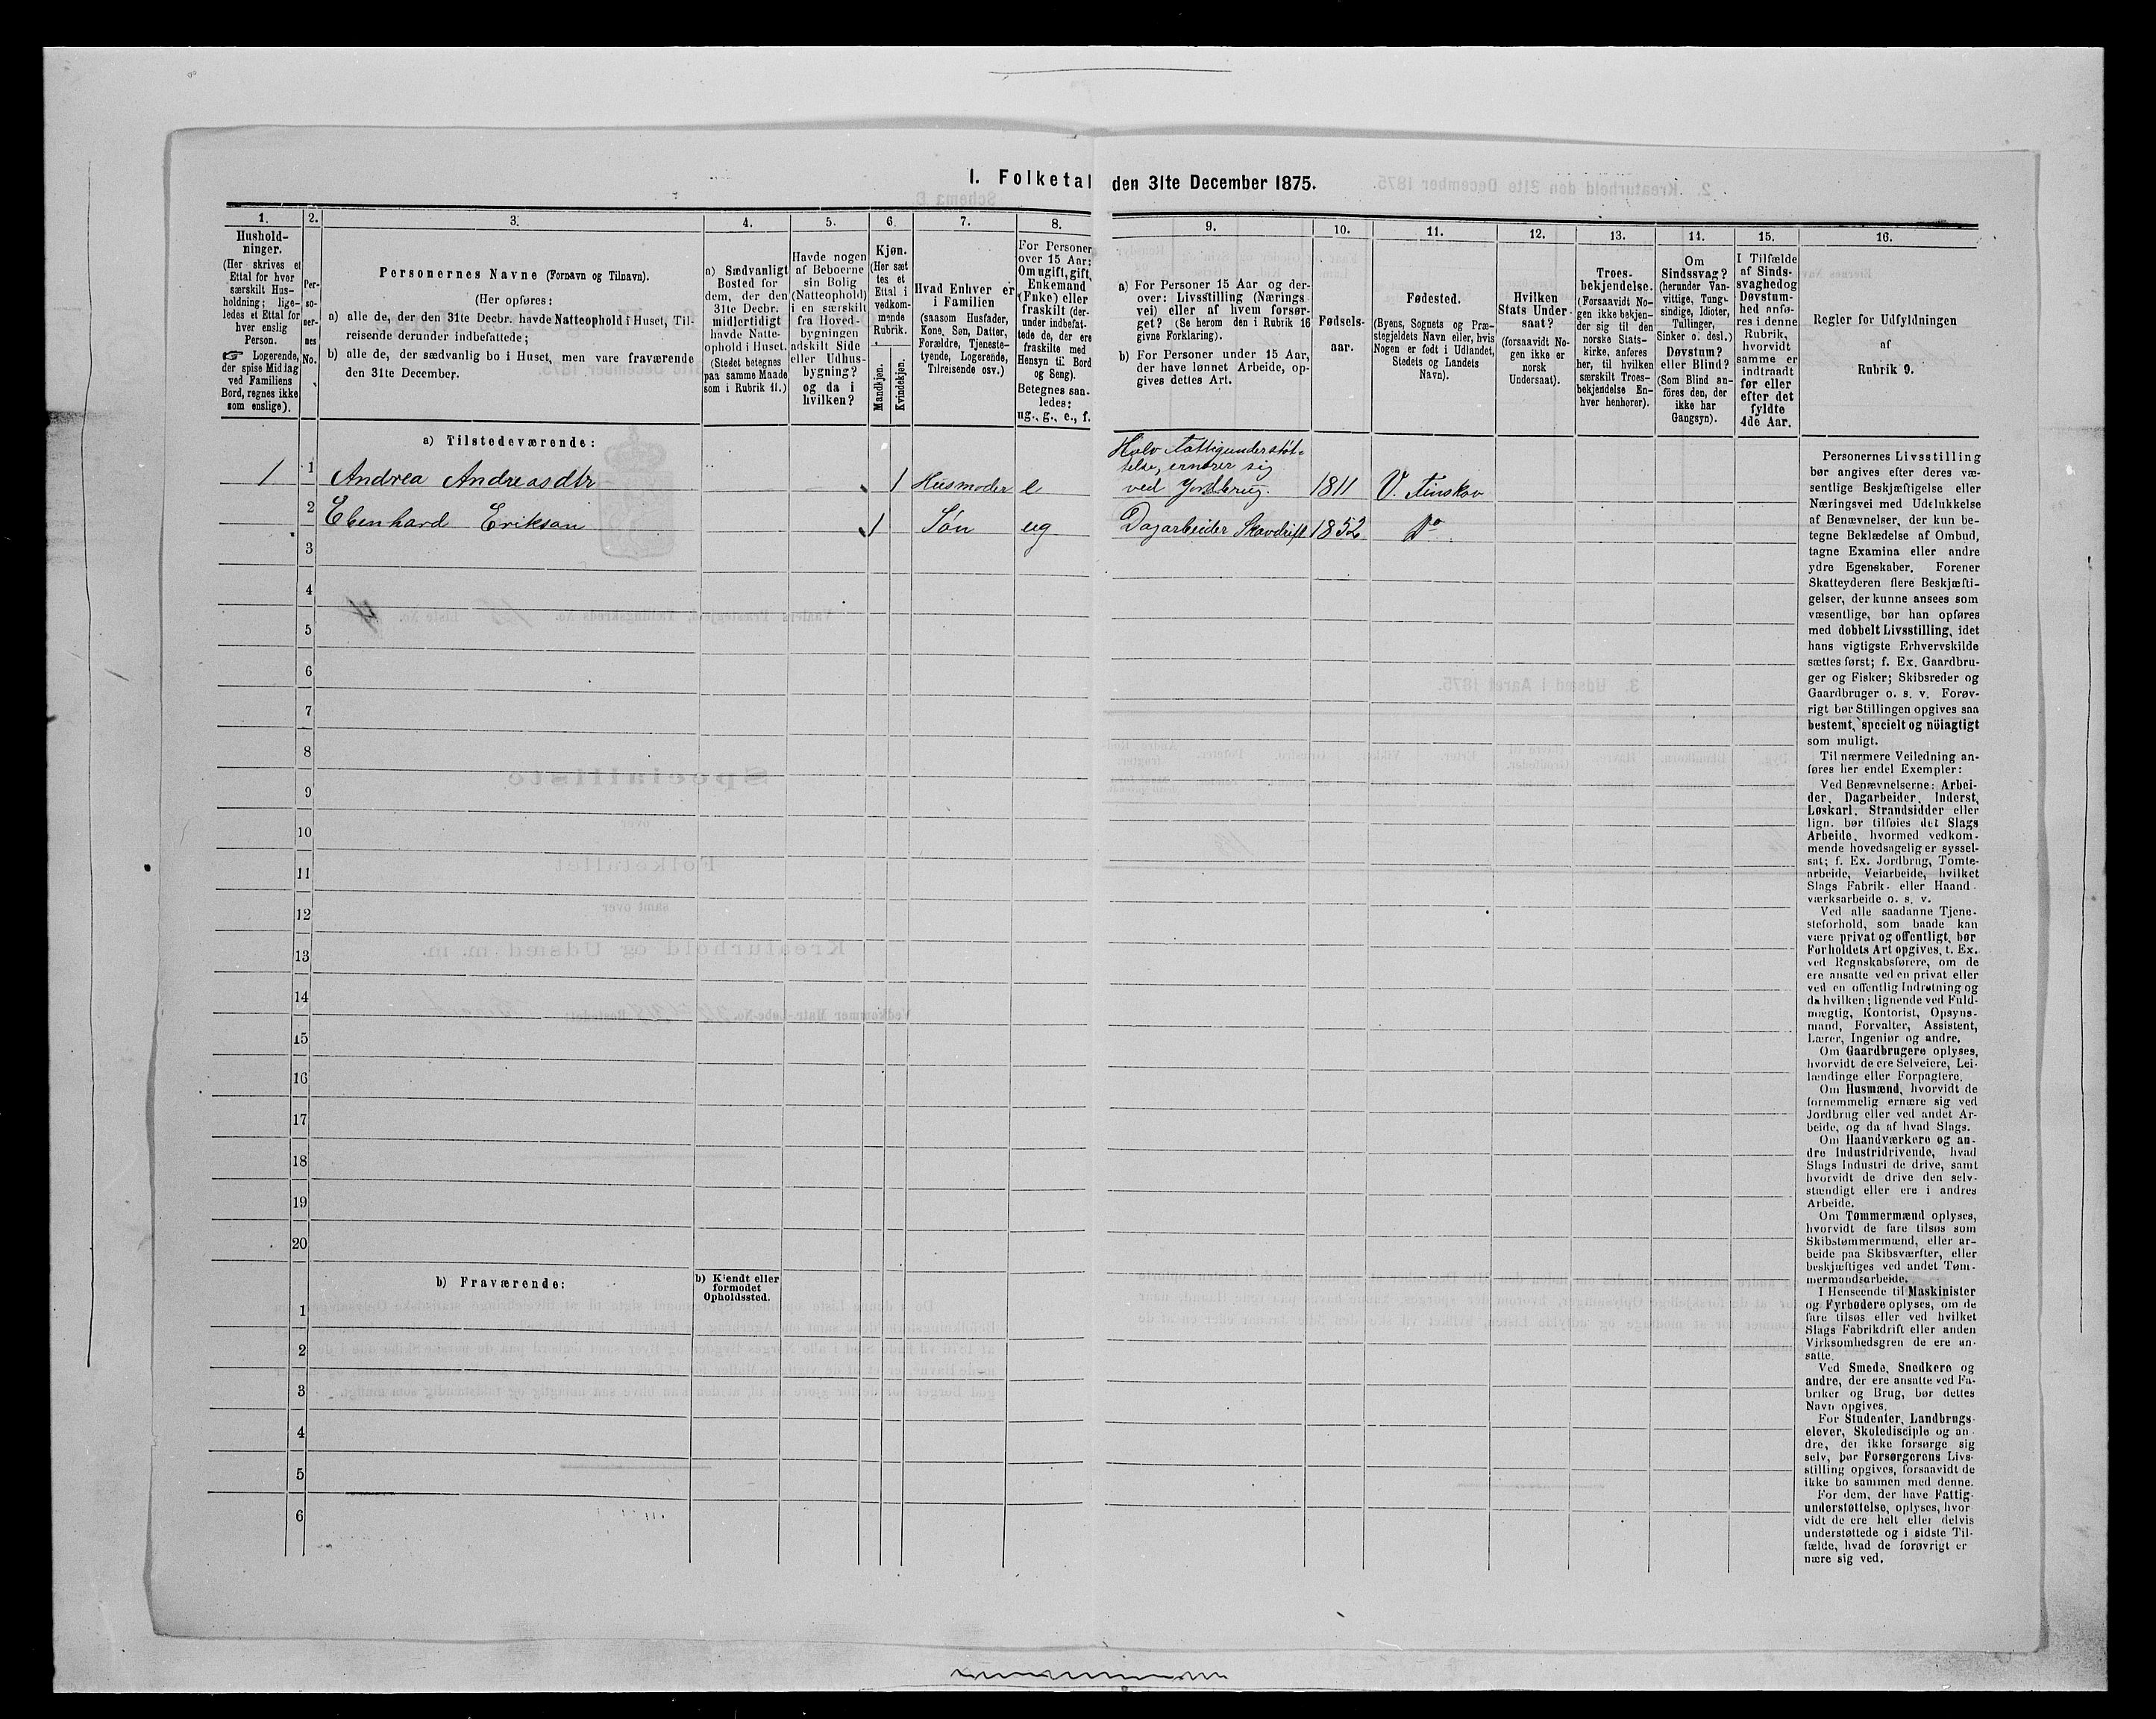 I. Folketal den 31te December 1875.
1.
Hushold-
ninger.
(Her skrives et
Ettal for hver
særskilt Hus-
holdning; lige-
ledes et Ettal for
hver enslig
Person.
☞ Logerende,
der spise Middag
ved Familiens
Bord, regnes ikke
som enslige).
2.
Per-
so-
ner-
nes
No.
3.
Personernes Navne (Fornavn og Tilnavn).
(Her opføres:
a) alle de, der den 31te Decbr. havde Natteophold i Huset, Til-
reisende derunder indbefattede;
b) alle de, der sædvanlig bo i Huset, men vare fraværende
den 31te December.
4.
a) Sædvanligt
Bosted for
dem, der den
31te Decbr.
midlertidigt
havde Natte-
ophold i Huset.
(Stedet betegnes
paa samme Maade
som i Rubrik 11.)
5.
Havde nogen
af Beboerne
sin Bolig
(Natteophold)
i en særskilt
fra Hoved-
bygningen
adskilt Side
eller Udhus-
bygning?
og da i
hvilken?
6.
Kjøn.
(Her sæt
tes et
Ettal i
vedkom-
mende
Rubrik.
Mandkjøn.
Kvindekjøn.
7.
Hvad Enhver er
i Familien
(saasom Husfader,
Kone, Søn, Datter,
Forældre, Tjeneste-
tyende, Logerende,
Tilreisende osv.)
8.
For Personer
over 15 Aar:
Om ugift, gift,
Enkemand
(Enke) eller
fraskilt (der-
under indbefat-
tede de, der ere
fraskilte med
Hensyn til Bord
og Seng).
Betegnes saa-
ledes:
ug., g., e., f.
9.
a) For Personer 15 Aar og der-
over: Livsstilling (Nærings
vei) eller af hvem forsør-
get? (Se herom den i Rubrik 16
givne Forklaring).
b) For Personer under 15 Aar,
der have lønnet Arbeide, op-
gives dettes Art.
10.
Fødsels-
aar.
11.
Fødested.
(Byens, Sognets og Præ-
stegjeldets Navn eller, hvis
Nogen er født i Udlandet,
Stedets og Landets
Navn).
12.
Hvilken
Stats Under-
saat?
(forsaavidt No-
gen ikke er
norsk
Undersaat).
13.
Troes-
bekjendelse.
(Forsaavidt No-
gen ikke bekjen-
der sig til den
norske Stats-
kirke, anføres
her, til hvilken
særskilt Troes-
bekjendelse En-
hver henhører).
14.
Om
Sindssvag?
(herunder Van-
vittige, Tung-
sindige, Idioter,
Tullinger,
Sinker o. desl.)
Døvstum?
eller Blind?
(Som Blind an-
føres den, der
ikke har
Gangsyn).
15.
I Tilfælde
af Sinds-
svaghed og
Døvstum-
hed anfø-
res i denne
Rubrik,
hvorvidt
samme er
indtraadt
før eller
efter det
fyldte
4de Aar.
16.
Regler for Udfyldningen
af
Rubrik 9.
a) Tilstedeværende:
1 1 Andrea Andreasdtr 1 Husmoder e Halv Fattigunderstøt-
telse, ernærer sig
ved Jordbrug. 1811 V.
2 Ebenhard Eriksan 1 Søn ug Dagarbeider Skovdrift 1852 Do
3
4
5
6
7
8
9
10
11
12
13
14
15
16
17
18
19
20
b) Fraværende:
b) Kjendt eller
formodet
Opholdssted.
1
2
3
4
5
6
Personernes Livsstilling
bør angives efter deres væ-
sentlige Beskjæftigelse eller
Næringsvei med Udelukkelse
af Benævnelser, der kun be-
tegne Beklædelse af Ombud,
tagne Examina eller andre
ydre Egenskaber. Forener
Skatteyderen flere Beskjæfti-
gelser, der kunne ansees som
væsentlige, bør han opføres
med dobbelt Livsstilling, idet
hans vigtigste Erhvervskilde
sættes først; f. Ex. Gaardbru-
ger og Fisker; Skibsreder og
Gaardbruger o. s. v. Forøv-
rigt bør Stillingen opgives saa
bestemt, specielt og nöiagtigt
som muligt.
Til nærmere Veiledning an-
føres her endel Exempler:
Ved Benævnelserne: Arbei-
der, Dagarbeider, Inderst,
Løskarl, Strandsidder eller
lign. bør tilføies det Slags
Arbeide, hvormed vedkom-
mende hovedsagelig er syssel-
sat; f. Ex. Jordbrug, Tomte-
arbeide, Veiarbeide, hvilket
Slags Fabrik- eller Haand-
værksarbeide o. s. v.
Ved alle saadanne Tjene-
steforhold, som baade kan
være privat og offentligt, bør
Forholdets Art opgives, t. Ex.
ved Regnskabsførere, om de
ere ansatte ved en privat eller
ved en offentlig Indretning og
da hvilken; lignende ved Fuld-
mægtig, Kontorist, Opsyns-
mand, Forvalter, Assistent,
Lærer, Ingeniør og andre.
Om Gaardbrugere oplyses,
hvorvidt de ere Selveiere, Lei-
lændinge eller Forpagtere.
Om Husmænd, hvorvidt de
fornemmelig ernære sig ved
Jordbrug eller ved andet Ar-
beide, og da af hvad Slags.
Om Haandværkere og an-
dre Industridrivende, hvad
Slags Industri de drive, samt
hvorvidt de drive den selv-
stændigt eller ere i andres
Arbeide.
Om Tømmermænd oplyses,
hvorvidt de fare tilsøs som
Skibstømmermænd, eller ar-
beide paa Skibsværfter, eller
beskjæftiges ved andet Tøm-
mermandsarbeide.
I Henseende til Maskinister
og Fyrbødere oplyses, om de
fare tilsøs eller ved hvilket
Slags Fabrikdrift eller anden
Virksomhedsgren de ere an-
satte.
Ved Smede, Snedkere og
andre, der ere ansatte ved Fa-
briker og Brug, bør dettes
Navn opgives.
For Studenter, Landbrugs-
elever, Skoledisciple og an-
dre, der ikke forsørge sig
selv, bør Forsørgerens Livs-
stilling opgives, forsaavidt de
ikke bo sammen med denne.
For dem, der have Fattig-
understøttelse, oplyses, hvor-
vidt de ere helt eller delvis
understøttede og i sidste Til-
fælde, hvad de forøvrigt er-
nære sig ved.